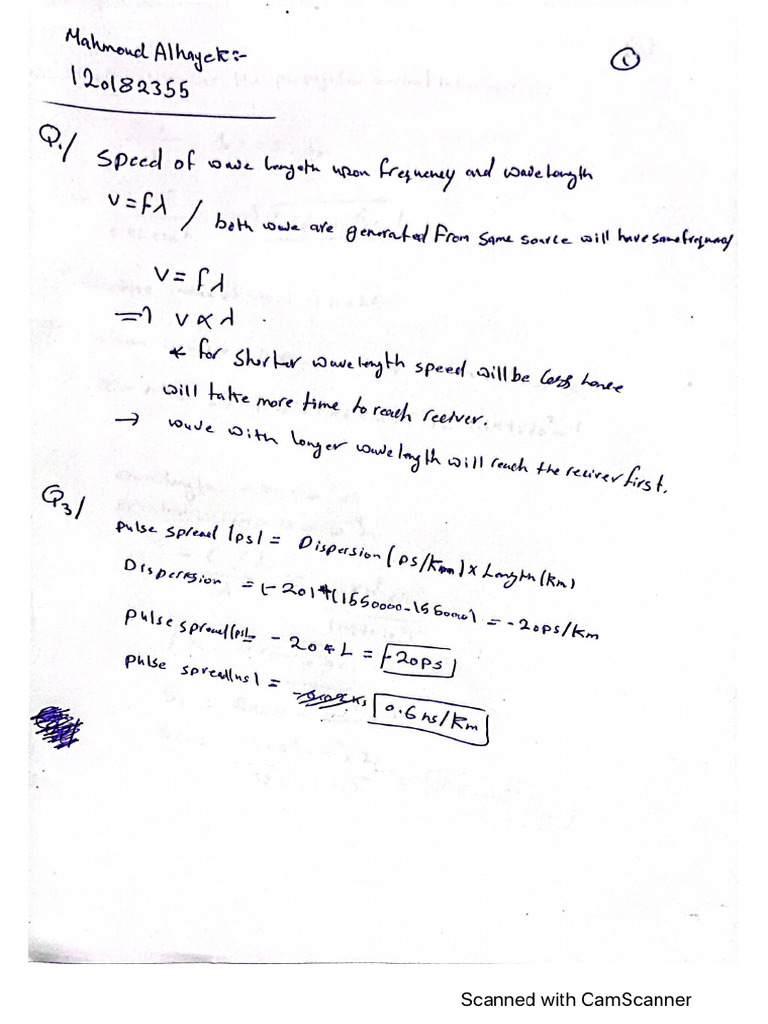 Mahmoud Alhayek:-
①
120182355
Q1/ Speed of wave length upon frequency and wavelength
v = fλ / both wave are generated from same source will have same frequency
v = fλ
⇒ v ∝ λ .
* for shorter wavelength speed will be less hence
will take more time to reach reciver.
→ wave with longer wavelength will reach the reciver first.
Q3/
pulse spread (ps) = Dispersion (ps/km) x Length (km)
Dispersion = (-20) * (1550000-1560000) = -20ps/km
pulse spread (ps) = -20 * L = -20ps
pulse spread (ns) = 0.6 ns/km
Scanned with CamScanner